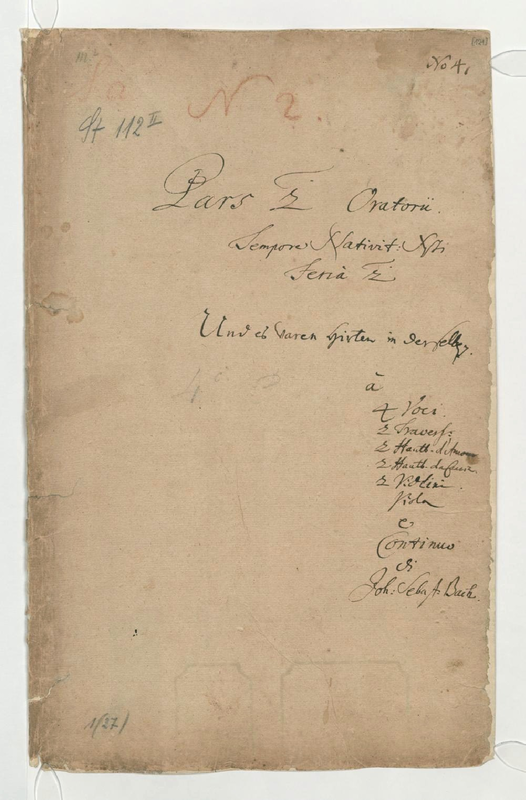 No 4.
N 2.
St 112 II
Pars 2 Oratorii.
Tempore Nativit: Xti
Feria 2
Und es waren Hirten in derselb.
à
4 Voci.
2 Travers:
2 Hautb. d'Amour
2 Hautb. da Caccia
2 Violini.
Viola
e
Continuo
di
Joh: Sebast: Bach.
1(27)